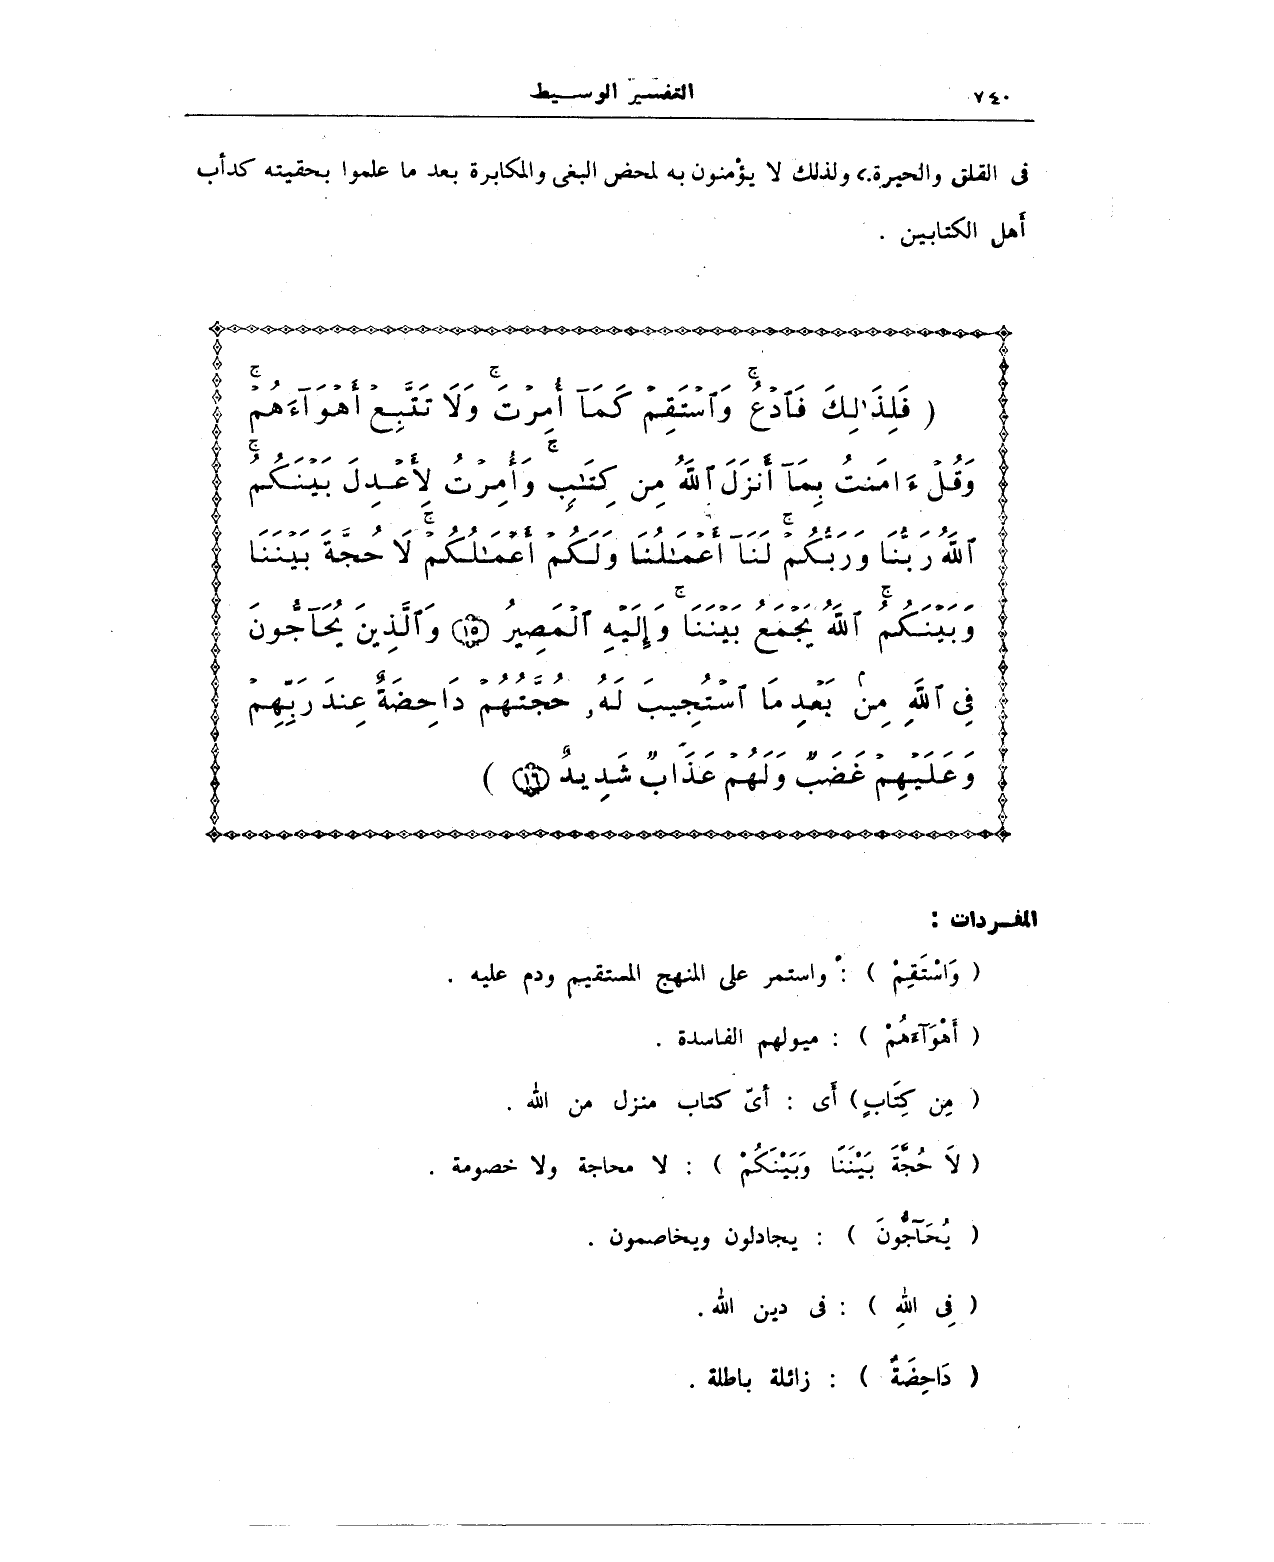 ٧٤٠
التفسير الوسيط
فى القلق والحيرة، ولذلك لا يؤمنون به لمحض البغى والمكابرة بعد ما علموا بحقيته كدأب
أهل الكتابين .
( فَلِذَٰلِكَ فَٱدْعُ ۖ وَٱسْتَقِمْ كَمَآ أُمِرْتَ ۖ وَلَا تَتَّبِعْ أَهْوَآءَهُمْ ۖ
وَقُلْ ءَامَنتُ بِمَآ أَنزَلَ ٱللَّهُ مِن كِتَٰبٍ ۖ وَأُمِرْتُ لِأَعْدِلَ بَيْنَكُمُ ۖ
ٱللَّهُ رَبُّنَا وَرَبُّكُمْ ۖ لَنَآ أَعْمَٰلُنَا وَلَكُمْ أَعْمَٰلُكُمْ ۖ لَا حُجَّةَ بَيْنَنَا
وَبَيْنَكُمُ ۖ ٱللَّهُ يَجْمَعُ بَيْنَنَا ۖ وَإِلَيْهِ ٱلْمَصِيرُ ١٥ وَٱلَّذِينَ يُحَآجُّونَ
فِى ٱللَّهِ مِنۢ بَعْدِ مَا ٱسْتُجِيبَ لَهُۥ حُجَّتُهُمْ دَاحِضَةٌ عِندَ رَبِّهِمْ
وَعَلَيْهِمْ غَضَبٌ وَلَهُمْ عَذَابٌ شَدِيدٌ ١٦ )
المفردات :
( وَاسْتَقِمْ ) : واستمر على المنهج المستقيم ودم عليه .
( أَهْوَآءَهُمْ ) : ميولهم الفاسدة .
( مِن كِتَابٍ ) أَى : أىّ كتاب منزل من الله .
( لاَ حُجَّةَ بَيْنَنَا وَبَيْنَكُمْ ) : لا محاجة ولا خصومة .
( يُحَآجُّونَ ) : يجادلون ويخاصمون .
( فِى اللهِ ) : فى دين الله .
( دَاحِضَةٌ ) : زائلة باطلة .